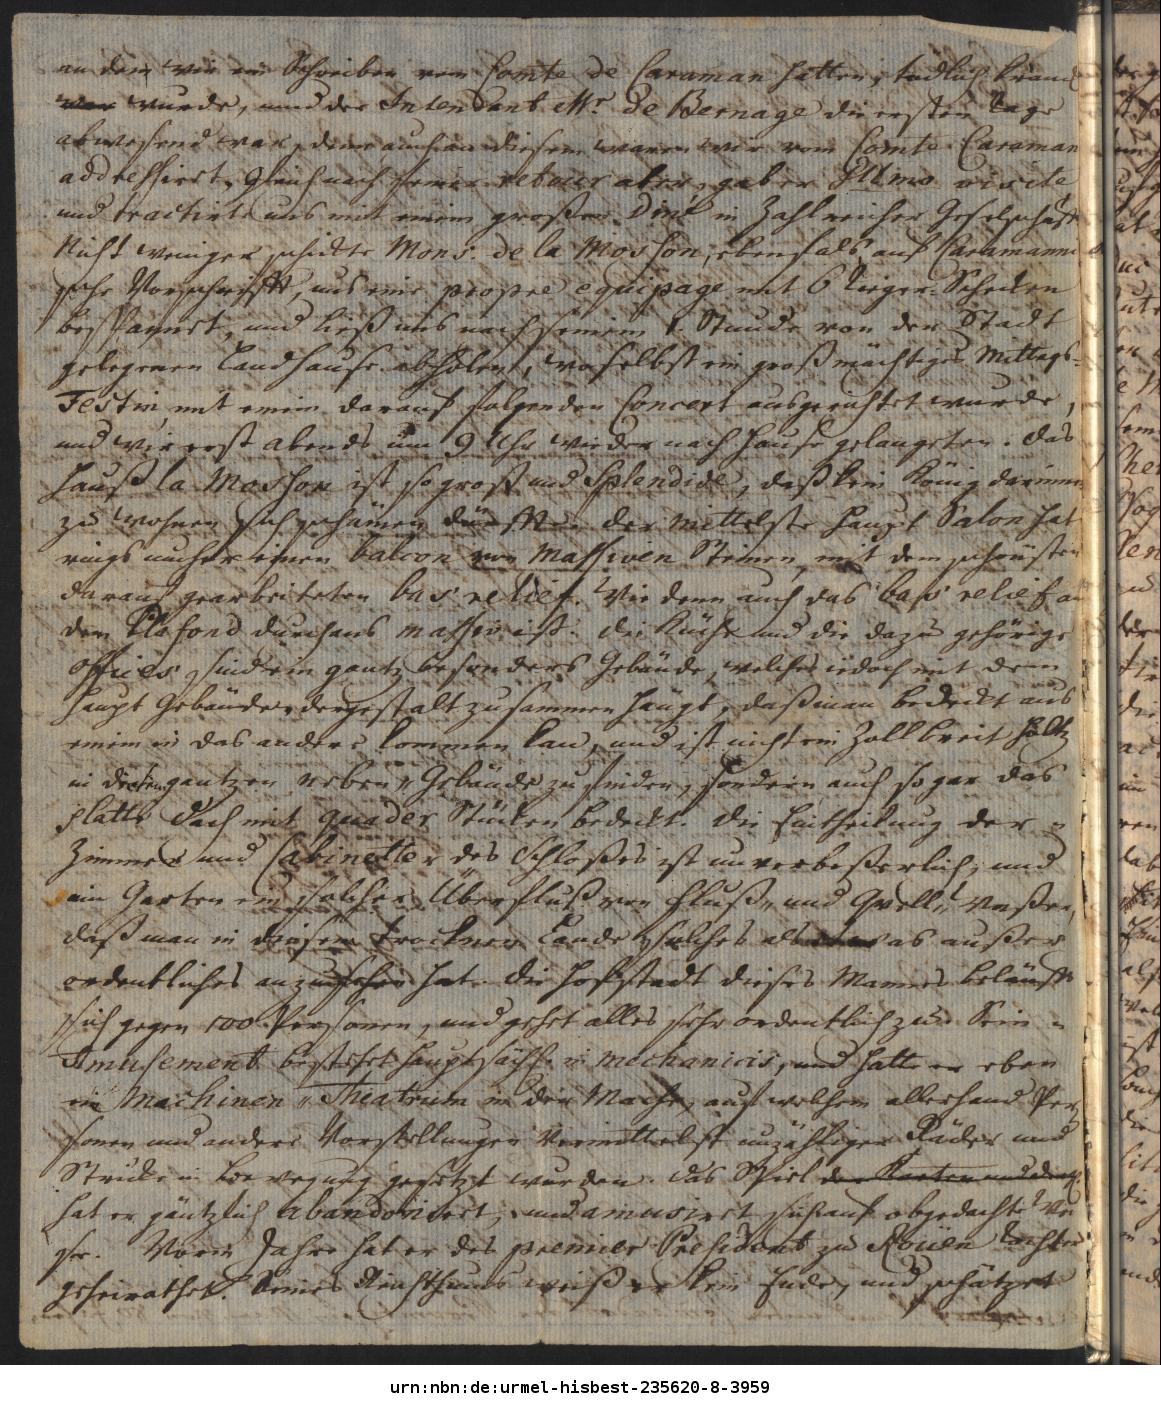 an dem wir ein Schreiben vom Comte de Caraman hatten, tödlich kranck
wurde, und der Intendant Mr. de Bernage die ersten Tage
abwesend war, denn auch an diesem waren wir vom Comte Caraman
addressiert. Gleich nach seiner retour aber, gab er Illmo visite
und tractirte uns mit einem großen Diné in Zahlreicher Gesellschafft
Nicht weniger schickte Mons. de la Mosson, ebenfals auf Caramanni
sche Vorschrifft, uns eine propre equipage mit 6 Tieger-Schecken
bespannet, und ließ uns nach seinem 1. Stunde von der Stadt
gelegenen Landhause abholen, woselbst ein großmächtiges Mittags-
Festin, mit einem darauf folgenden Concert ausgerichtet wurde,
und wir erst abends um 9 Uhr wieder nach Hause gelangeten. Das
Hauß la Mosson ist so groß und Splendide, daß kein König darinnen
zu wohnen sich schämen dürffte. der mittelste Haupt Salon hat
rings umher einen balcon von massiven Steinen, mit dem schönsten
darauf gearbeiteten bas relief. Wie denn auch das bass relief an
dem Plafond durchaus massiv ist. Die Küche und die dazu gehörige
offices, sind ein gantz besonders Gebäude, welches iedoch mit dem
Haupt Gebäude dergestalt zusammen hängt, daß man bedeckt aus
einem in das andere kommen kan, und ist nicht ein Zoll breit Holtz
in diesem gantzen neben Gebäude zu finden, sondern auch sogar das
platte Dach mit quader Stücken bedeckt. Die Eintheilung der
Zimmer und Cabinetter des Schloßes ist unverbeßerlich, und
im Garten ein solcher Überfluß von Fluß- und Quell-Waßer,
daß man in diesem trocknen Lande solches als was außer
ordentliches anzusehen hat. Die Hofstadt dieses Mannes beläufft
sich gegen 100 Personen, und gehet alles sehr ordentlich zu. Sein
Amusement bestehet hauptsächl. in mechanicis, und hatte er eben
ein Machinen Theatrum in der Mache, auf welchem allerhand Per
sonen und andere Vorstellungen Vermittelst unzähliger Räder und
Stricke in bewegung gesetzt wurden. Das Spiel der Karten und der
hat er gäntzlich abandoniert, und amusirt sich auf obgedachte We
se. Vorm Jahre hat er des premier President zu Roüen Tochter
geheirathet. Seines Reichthums weiß er kein Ende, und schätzet
urn:nbn:de:urmel-hisbest-235620-8-3959